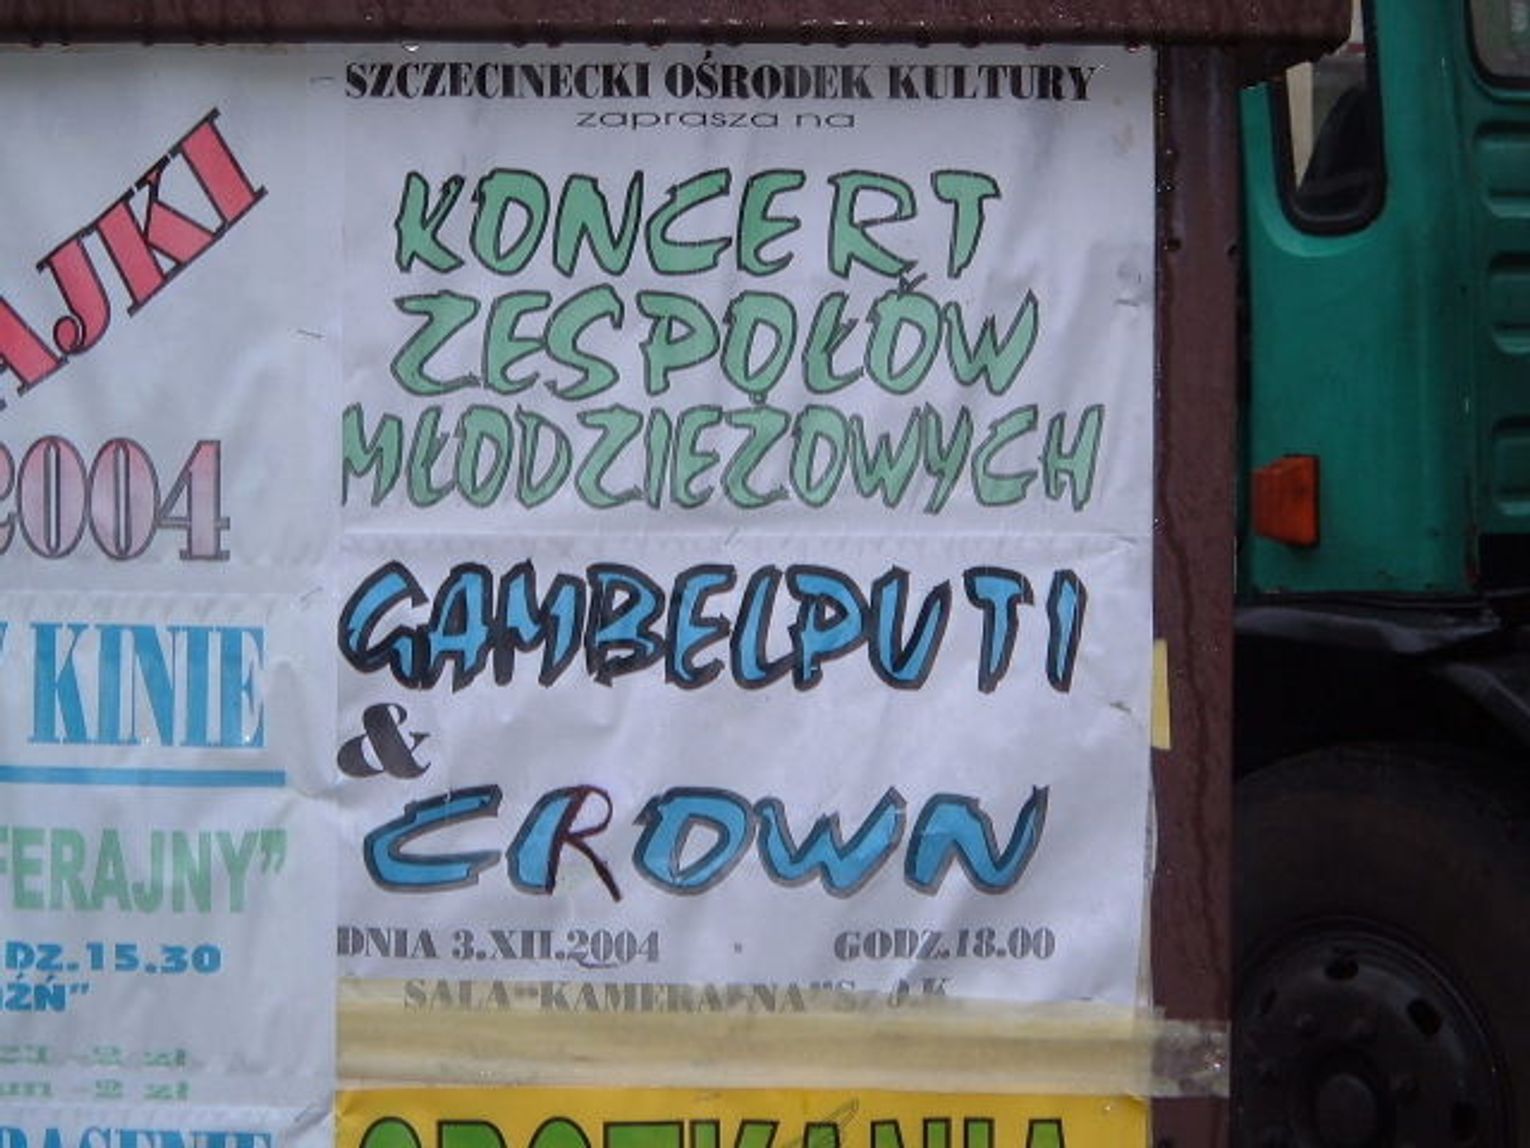 SZCZECINECKI OŚRODEK KULTURY
zaprasza na
KONCERT
ZESPOŁÓW
MŁODZIEŻOWYCH
GAMBELPUTI
&
CROWN
DNIA 3.XII.2004 GODZ.18.00
SALA "KAMERALNA" S. O.K
SPOTKANIA
AJKI
2004
KINIE
FERAJNY”
DZ.15.30
2 zł
2 zł